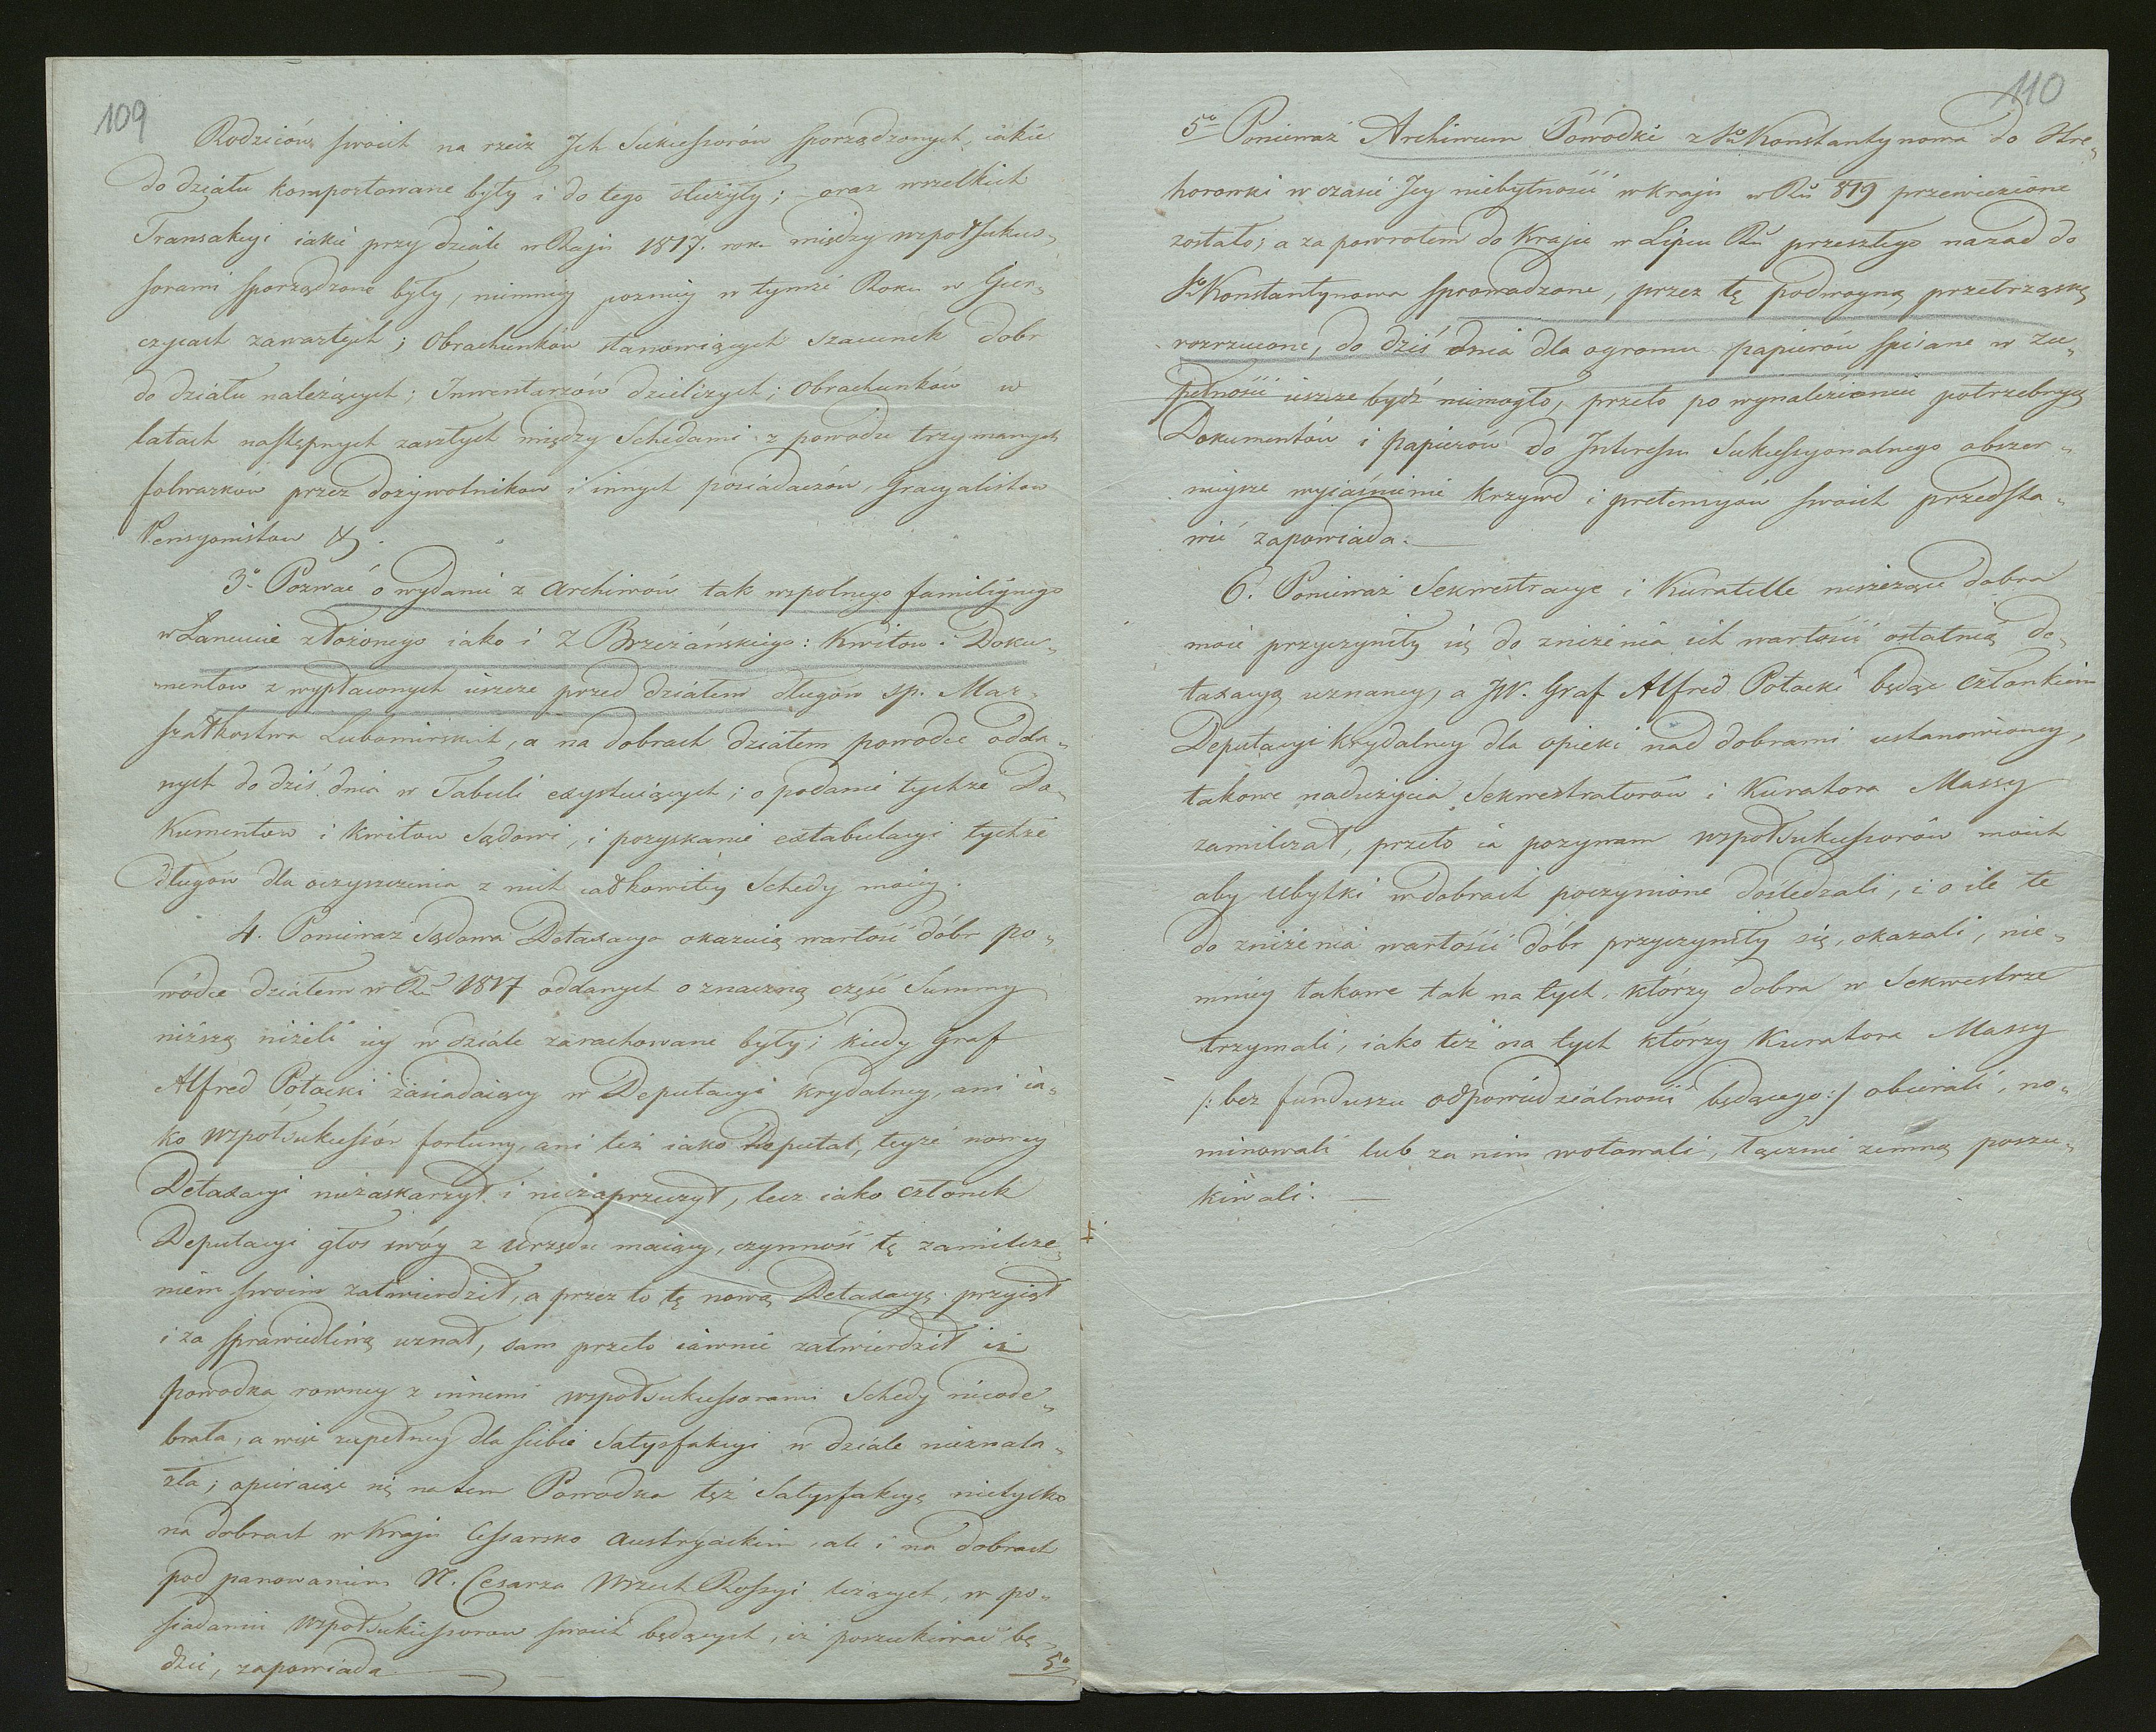 109
Rodziców swoich na rzecz Ich Sukcessorów sporządzonych, iakie
do działu komportowane były i do tego służyły; oraz wszelkich
Transakcyi iakie przy dziale w Maju 1817. roku między współsukces„
sorami sporządzone były, niemniey pozniey w tymże Roku w Gier„
czycach zawartych; Obrachunków stanowiących szacunek dobr
do działu należących; Inwentarzów dzielczych; Obrachunków w
latach następnych zaszłych między Schedami z powodu trzymanych
folwarków przez dożywotników i innych posiadaczów, Gracyalistow
Pensyonistow &.
3o Pozwać o wydanie z Archiwów tak wspolnego familiynego
w Lancucie złożonego iako i z Brzeżańskiego: Kwitow i Doku„
mentow z wypłaconych ieszcze przed działem długów sp. Mar„
szałkostwa Lubomirskich, a na dobrach działem powodce odda„
nych do dziś dnia w Tabuli exystuiących; o podanie tychże Do„
kumentow i kwitow Sądowi, i pozyskanie extabulacyi tychże
długow dla oczyszczenia z nich całkowitey Schedy moiey.
4. Ponieważ Sądowa Detaxacya okazuię wartość dóbr po„
wódce działem w Ru 1817 oddanych o znaczną część Summy
niższą niżeli iey w dziale zarachowane były; kiedy Graf
Alfred Potocki zasiadaiący w Deputacyi krydalney, ani ia„
ko współsukcessór fortuny, ani też iako Deputat, teyże nowey
Detaxacyi niezaskarzył i niezaprzeczył, lecz iako członek
Deputacyi głos swóy z urzędu maiący, czynność tę zamilcze„
niem swoim zatwierdził, a przez to tę nową Detaxacyą przyiął
i za sprawiedliwą uznał, sam przeto iawnie zatwierdził iż
powodka rowney z innemi współsukcessorami Schedy nieode„
brała, a więc zupełney dla siebie Satysfakcyi w dziale nieznala„
zła; opieraiąc się na tem Powodka też Satysfakcyą nietylko
na dobrach w Kraju Cessarsko Austryackim, ale i na dobrach
pod panowaniem N. Cesarza Wszech Rossyi leżących, w po„
siadaniu Współsukcessorow swoich będących, iż poszukiwać bę„
dzie, zapowiada
5o
110
5o Ponieważ Archiwum Powodki z So Konstantynowa do Stre„
horowki w czasie Jey niebytności w kraju w Ru 819 przewiezione
zostało; a za powrotem do Kraju w Lipcu Ru przeszłego nazad do
So Konstantynowa sprowadzone, przez tę podwoyną przetrząskę
rozrzucone, do dziś dnia dla ogromu papierów spisane w zu„
pełności ieszcze bydź niemogło, przeto po wynalezieniu potrzebnych
Dokumentów i papierów do Interessu Sukcessyonalnego obszer„
nieysze wyiaśnienie krzywd i pretensyów swoich przedsta„
wić zapowiada.
6. Ponieważ Sekwestracye i Kuratelle niszcząc dobra
moie przyczyniły się do zniżenia ich wartości ostatnią de„
taxacyą uznaney, a JW. Graf Alfred Potocki będąc członkiem
Deputacyi krydalney dla opieki nad dobrami ustanowioney,
takowe nadużycia Sekwestratorów i Kuratora Massy
zamilczał, przeto ia pozywam współsukcessorów moich
aby ubytki w dobrach poczynione dośledzali, i o ile te
do zniżenia wartości dóbr przyczyniły się, okazali, nie„
mniey takowe tak na tych, którzy dobra w Sekwestrze
trzymali, iako też na tych którzy Kuratora Massy
/: bez funduszu odpowiedzialności będącego :/ obierali, no„
minowali lub za nim wotowali, łącznie zemną poszu„
kiwali.